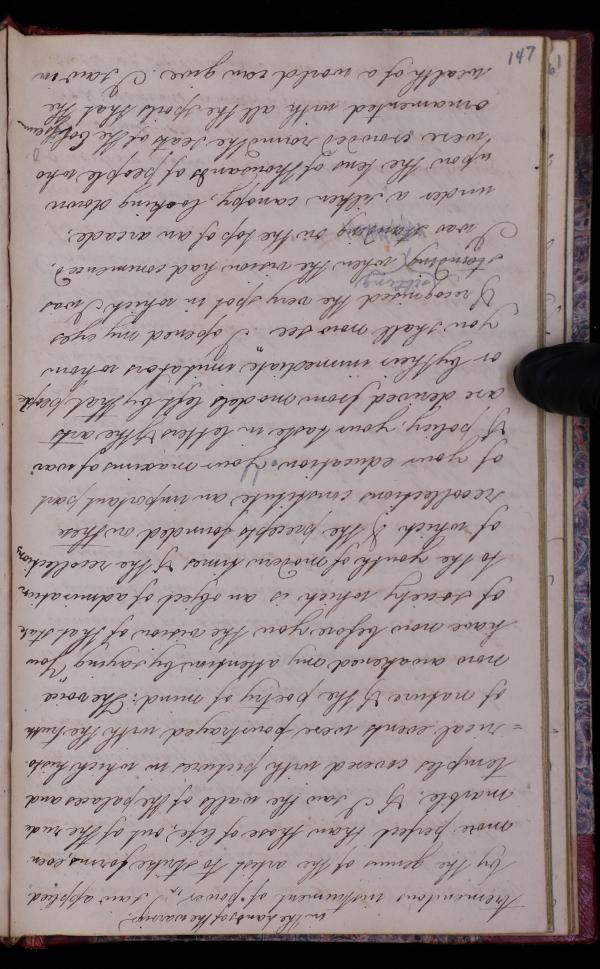 147
in the hands of the warrior,
tremendous instrument of power, I saw applied
by the genius of the artist to strike forms even
more perfect than those of life, out of the rude
marble; & I saw the walls of the palaces and
temples covered with pictures in which histo-
=rical events were pourtrayed with the truth
of nature & the poetry of mind. The voice
now awakened my attention by saying "You
have now before you the vision of that state
of society which is an object of admiration
to the youth of modern times & the recollections
of which & the precepts founded on these
recollections constitute an important part
of your education. Your maxims of war
& policy, your taste in letters & the arts
are derived from models left by that people
or by their immediate imitators whom
you shall now see". I opened my eyes
& recognised the very spot in which I was
sitting
standing when the vision had commenced.
I was standing on the top of an arcade,
under a silken canopy, looking down
upon the tens of thousands of people who
were crowded round the seats of the
ornamented with all the spoils that the
wealth of a world can give. I saw in